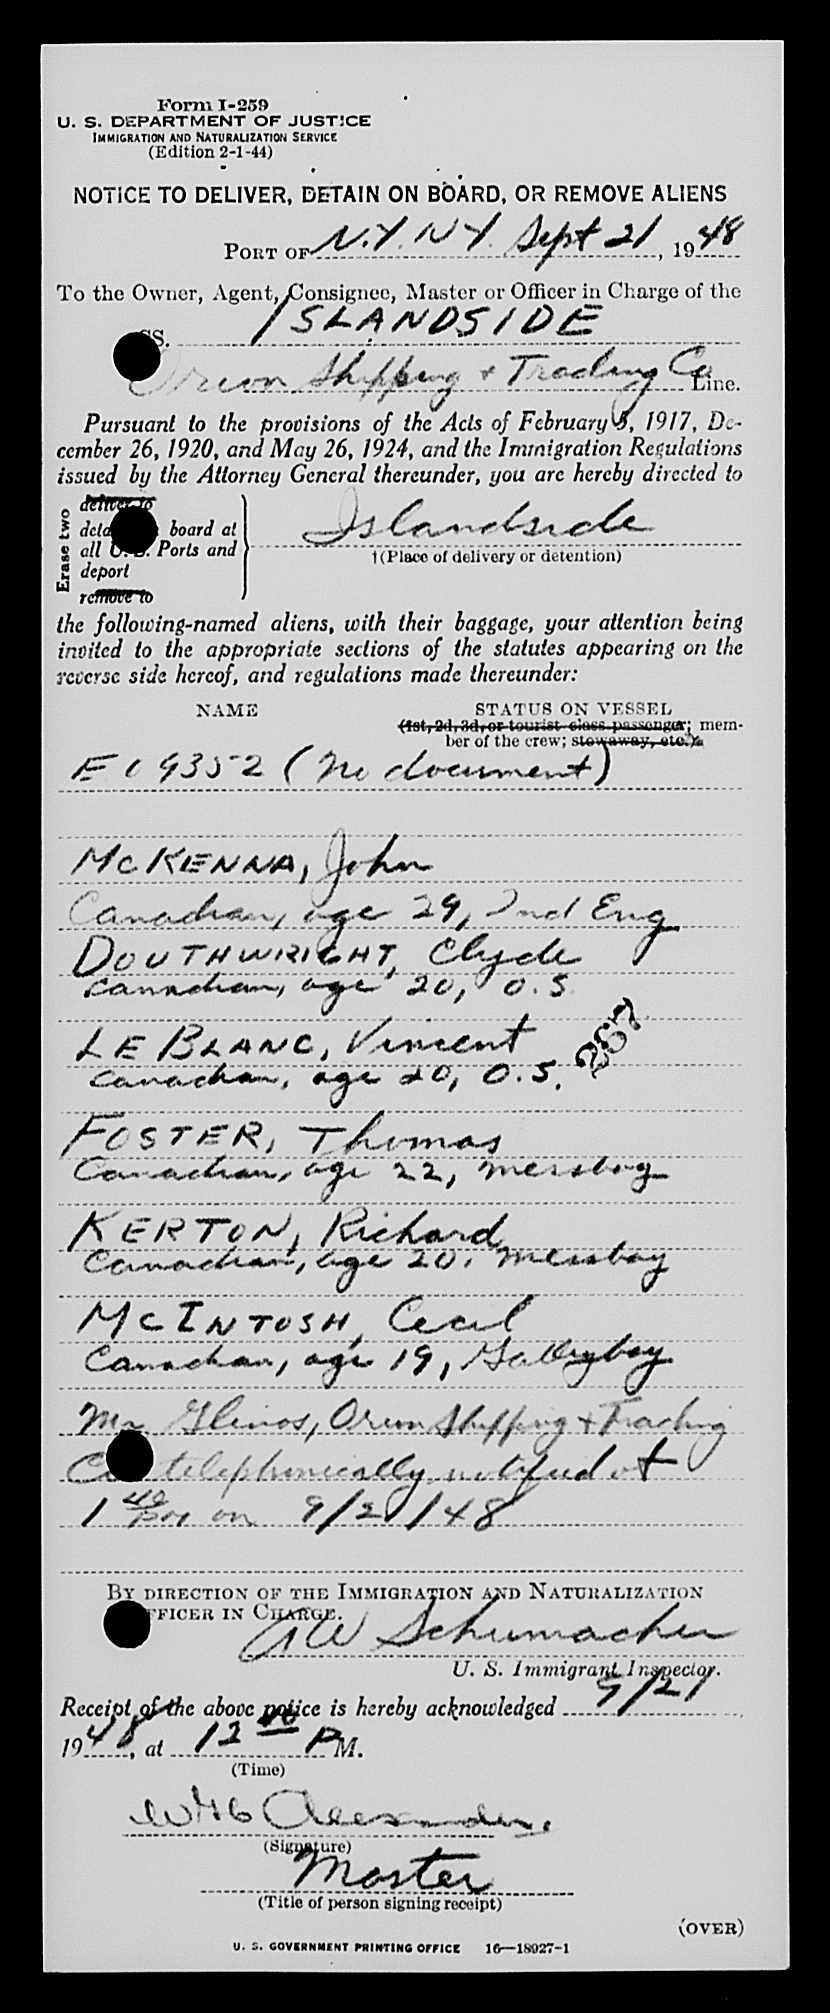 Form I-259
U. S. DEPARTMENT OF JUSTICE
IMMIGRATION AND NATURALIZATION SERVICE
(Edition 2-1-44)
NOTICE TO DELIVER, DETAIN ON BOARD, OR REMOVE ALIENS
PORT OF N.Y. N Y. Sept 21, 1948
To the Owner, Agent, Consignee, Master or Officer in Charge of the
SS. ISLANDSIDE
Orion Shipping + Trading Co Line.
Pursuant to the provisions of the Acts of February 5, 1917, De-
cember 26, 1920, and May 26, 1924, and the Immigration Regulations
issued by the Attorney General thereunder, you are hereby directed to
Erase two
deliver to
board at
all U. S. Ports and
deport
remove to
Islandside
†(Place of delivery or detention)
the following-named aliens, with their baggage, your attention being
invited to the appropriate sections of the statutes appearing on the
reverse side hereof, and regulations made thereunder:
NAME STATUS ON VESSEL
(1st, 2d, 3d, or tourist class passenger; mem-
ber of the crew; stowaway, etc.)
E 09352 (no document)
MCKENNA, John
Canadian, age 29, 2nd Eng
DOUTHWRIGHT, Clyde
Canadian, age 20, O.S.
LE BLANC, Vincent
Canadian, age 20, O.S.
267
FOSTER, Thomas
Canadian, age 22, messboy
KERTON, Richard
Canadian, age 20, messboy
MCINTOSH, Cecil
Canadian, age 19, Galleyboy
Mr Glinos, Orion Shipping + Trading
Co telephonically notified at
1 40 on 9/21/48
BY DIRECTION OF THE IMMIGRATION AND NATURALIZATION
OFFICER IN CHARGE.
A W Schumacher
U. S. Immigrant Inspector.
Receipt of the above notice is hereby acknowledged 9/21,
1948, at 12 PM.
(Time)
Alexander
(Signature)
Master
(Title of person signing receipt)
(OVER)
U. S. GOVERNMENT PRINTING OFFICE 16—18927-1